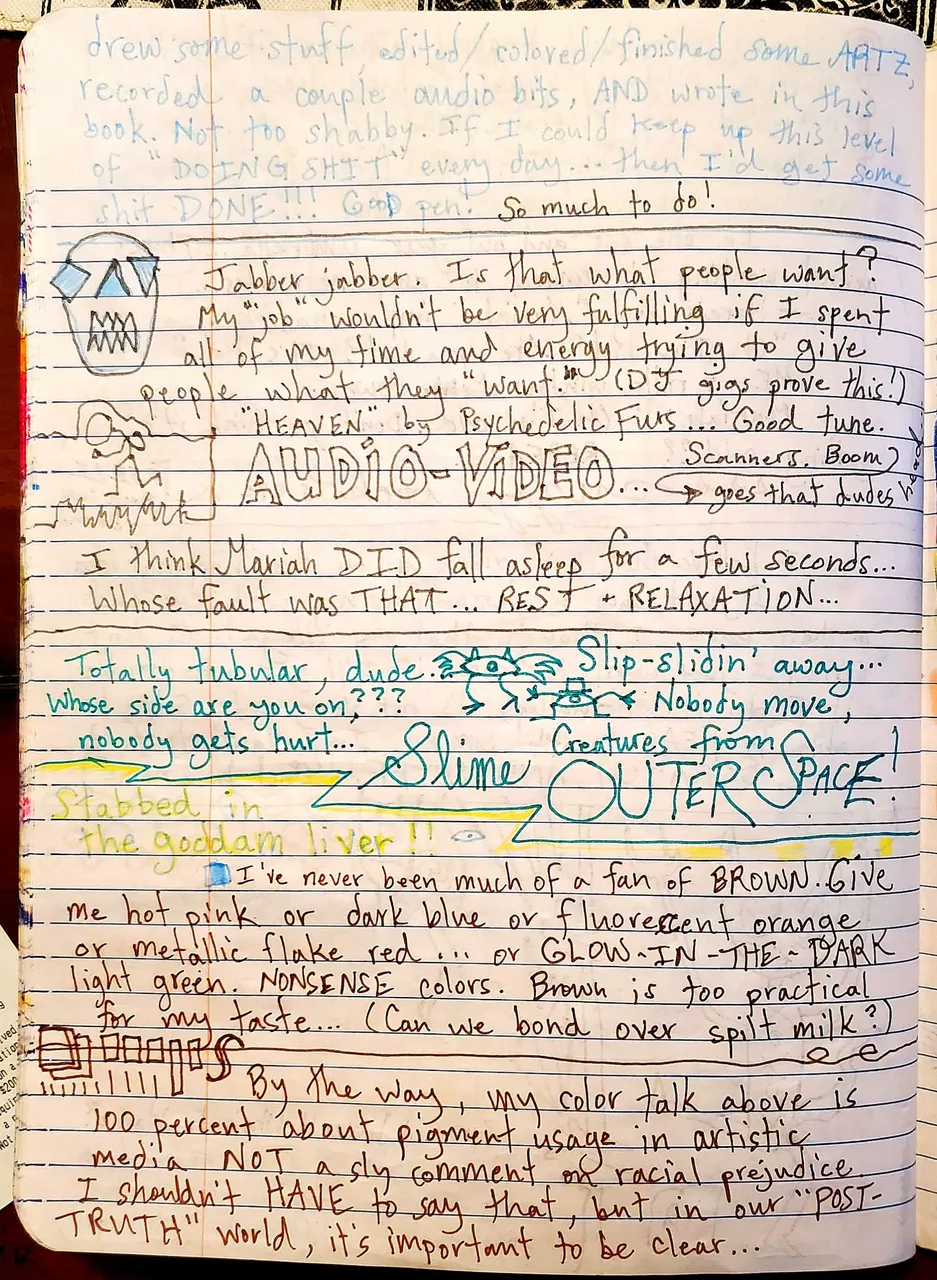 drew some stuff, edited/colored/finished some ARTZ,
recorded a couple audio bits, AND wrote in this
book. Not too shabby. If I could keep up this level
of "DOING SHIT" every day... then I'd get some
shit DONE!!! Good pen! So much to do!
Jabber jabber. Is that what people want?
My "job" wouldn't be very fulfilling if I spent
all of my time and energy trying to give
people what they "want." (DJ gigs prove this!)
"HEAVEN" by Psychedelic Furs... Good tune.
AUDIO-VIDEO... Scanners. Boom
goes that dudes head
I think Mariah DID fall asleep for a few seconds...
Whose fault was THAT... REST + RELAXATION...
Totally tubular, dude. Slip-slidin' away...
Whose side are you on,??? Nobody move,
nobody gets hurt... Slime Creatures from
OUTER SPACE!
Stabbed in
the goddam liver!!
I've never been much of a fan of BROWN. Give
me hot pink or dark blue or fluorescent orange
or metallic flake red... or GLOW-IN-THE-DARK
light green. NONSENSE colors. Brown is too practical
for my taste... (Can we bond over spilt milk?)
By the way, my color talk above is
100 percent about pigment usage in artistic
media NOT a sly comment on racial prejudice.
I shouldn't HAVE to say that, but in our "POST-
TRUTH" world, it's important to be clear...